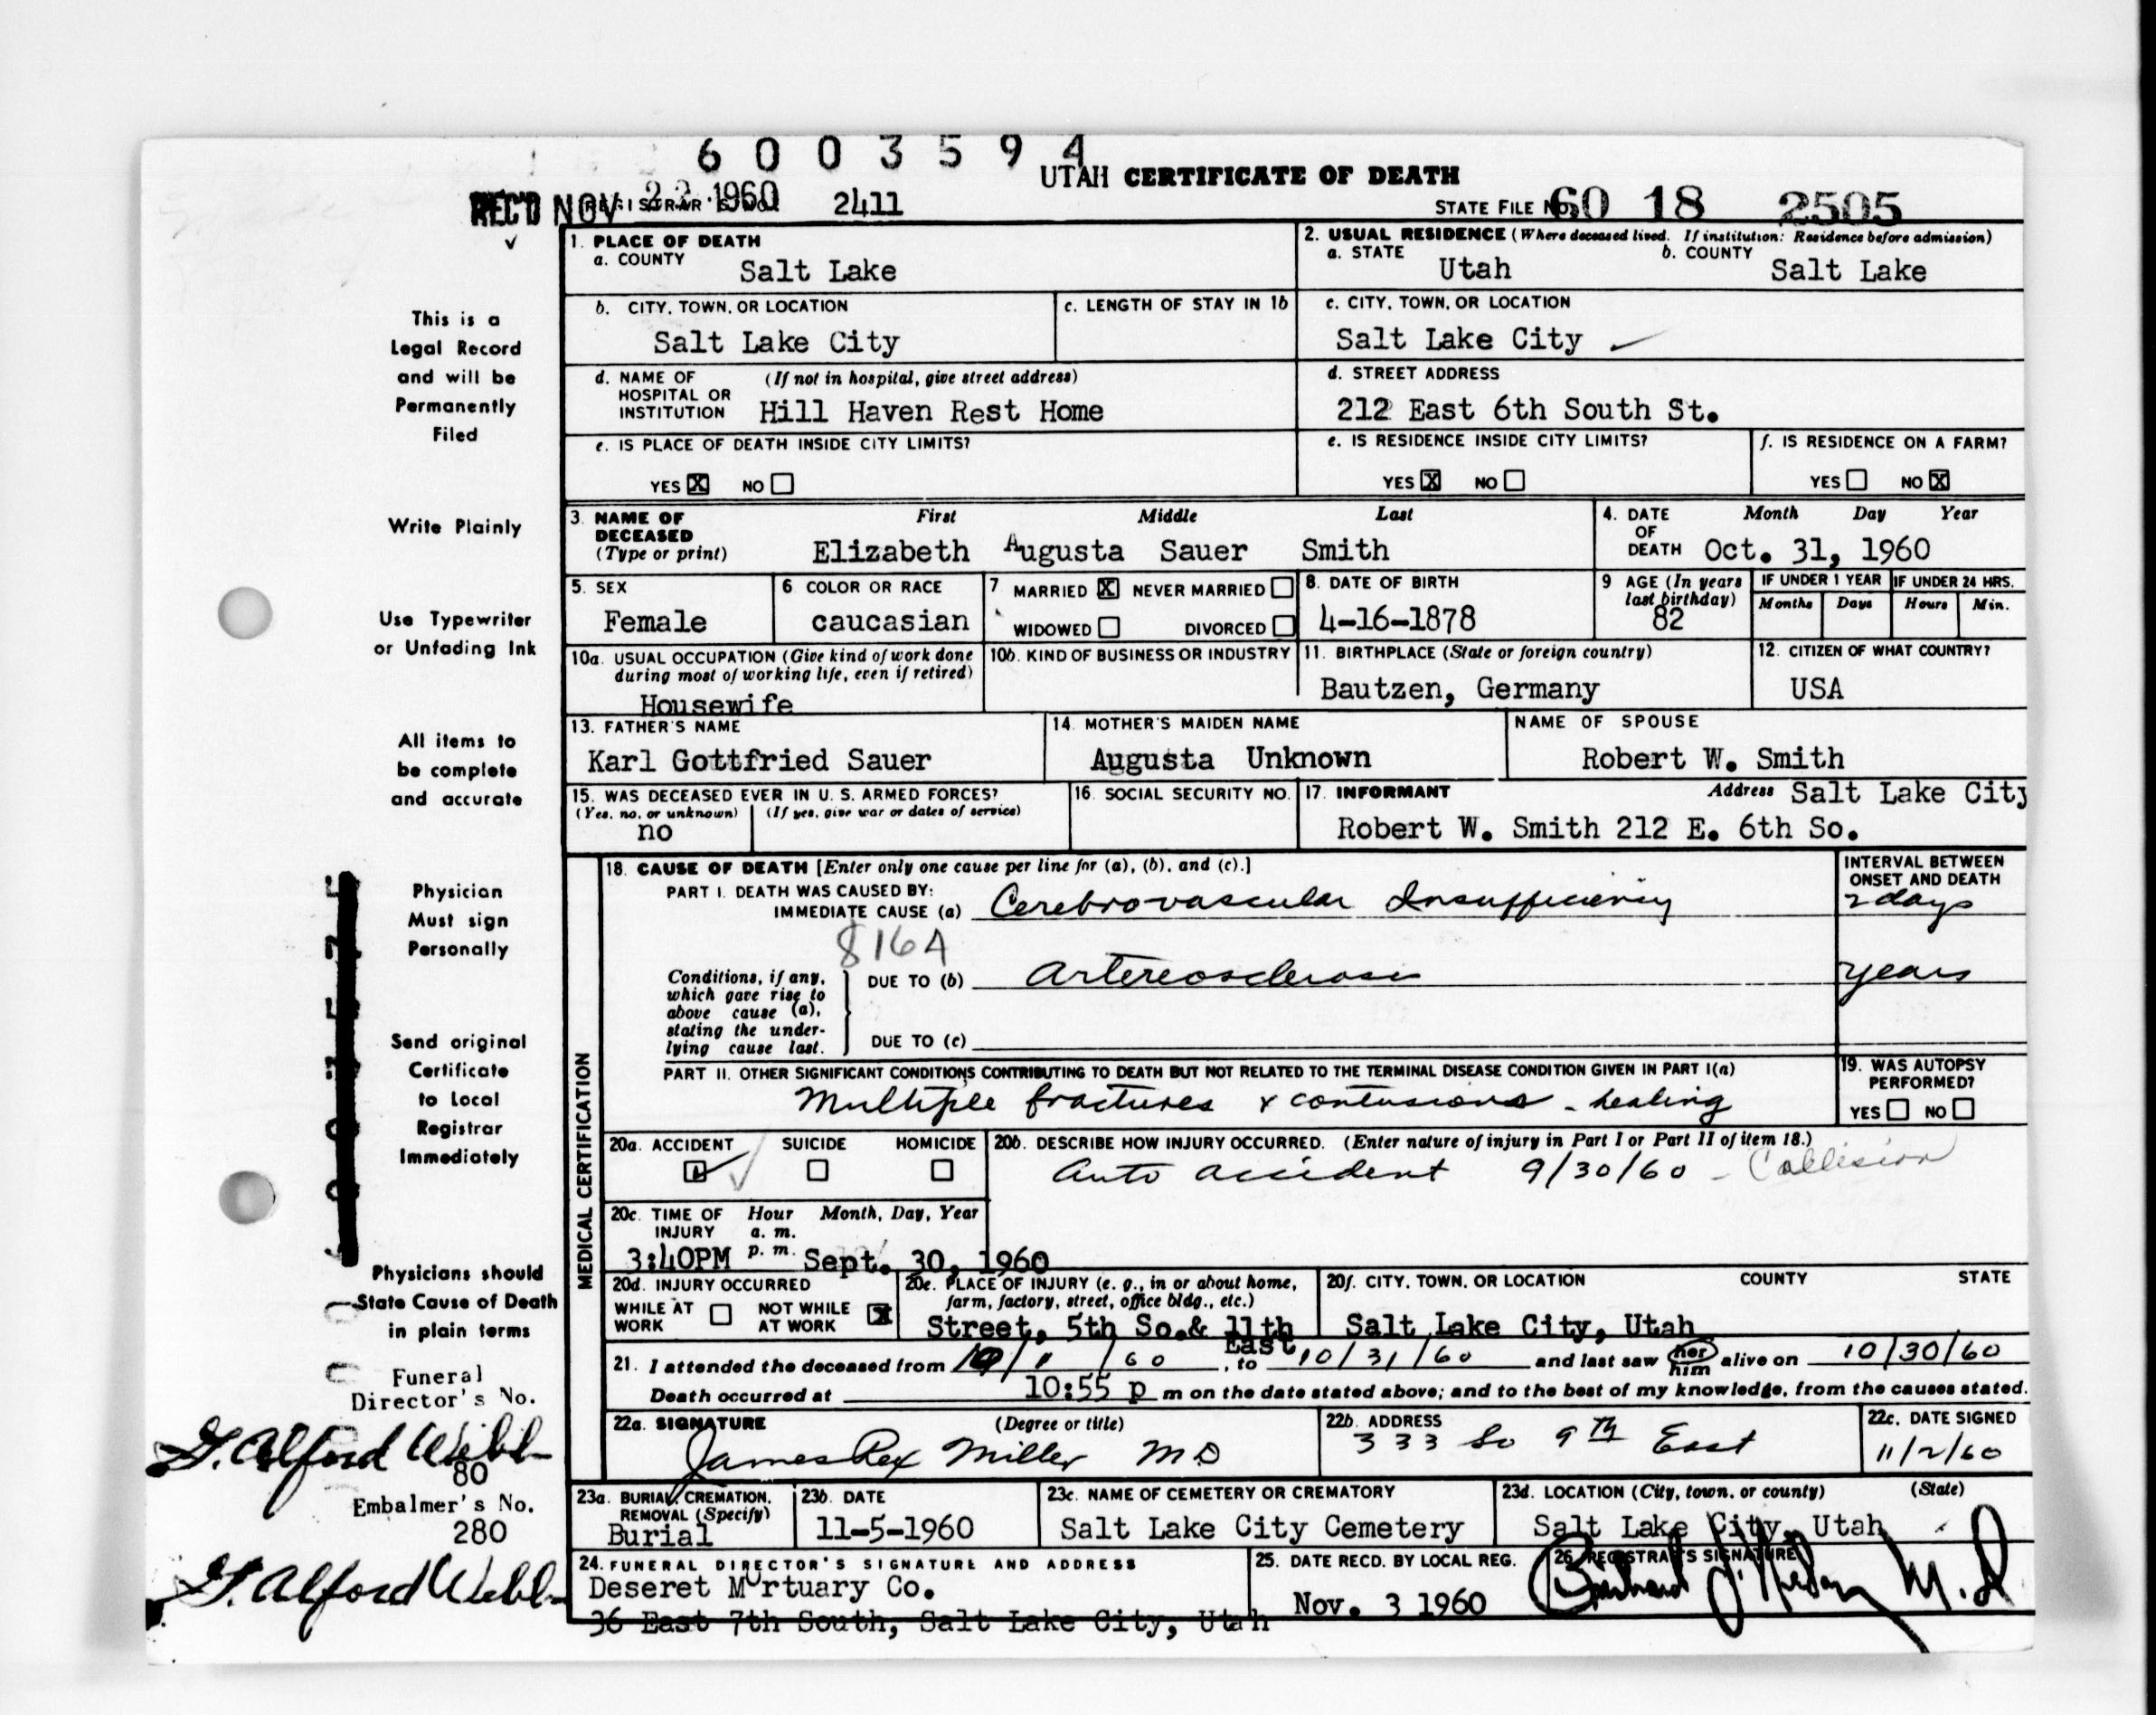 6 0 0 3 5 9 4
UTAH CERTIFICATE OF DEATH
REC'D NOV 22 1960 2411
STATE FILE NO. 60 18 2505
1. PLACE OF DEATH
a. COUNTY Salt Lake
2. USUAL RESIDENCE (Where deceased lived. If institution: Residence before admission)
a. STATE Utah b. COUNTY Salt Lake
b. CITY, TOWN, OR LOCATION Salt Lake City
c. LENGTH OF STAY IN 1b
c. CITY, TOWN, OR LOCATION Salt Lake City
d. NAME OF HOSPITAL OR INSTITUTION (If not in hospital, give street address) Hill Haven Rest Home
d. STREET ADDRESS 212 East 6th South St.
e. IS PLACE OF DEATH INSIDE CITY LIMITS? YES X NO
e. IS RESIDENCE INSIDE CITY LIMITS? YES X NO
f. IS RESIDENCE ON A FARM? YES NO X
3. NAME OF DECEASED (Type or print) First Middle Last
Elizabeth Augusta Sauer Smith
4. DATE OF DEATH Month Day Year
Oct. 31, 1960
5. SEX Female
6 COLOR OR RACE caucasian
7 MARRIED X NEVER MARRIED
WIDOWED DIVORCED
8. DATE OF BIRTH 4-16-1878
9 AGE (In years last birthday) 82
IF UNDER 1 YEAR Months Days
IF UNDER 24 HRS. Hours Min.
10a. USUAL OCCUPATION (Give kind of work done during most of working life, even if retired)
Housewife
10b. KIND OF BUSINESS OR INDUSTRY
11. BIRTHPLACE (State or foreign country) Bautzen, Germany
12. CITIZEN OF WHAT COUNTRY? USA
13. FATHER'S NAME Karl Gottfried Sauer
14. MOTHER'S MAIDEN NAME Augusta Unknown
NAME OF SPOUSE Robert W. Smith
15. WAS DECEASED EVER IN U. S. ARMED FORCES?
(Yes, no, or unknown) (If yes, give war or dates of service)
no
16. SOCIAL SECURITY NO.
17. INFORMANT Address Salt Lake City
Robert W. Smith 212 E. 6th So.
MEDICAL CERTIFICATION
18. CAUSE OF DEATH [Enter only one cause per line for (a), (b), and (c).]
INTERVAL BETWEEN ONSET AND DEATH
PART I. DEATH WAS CAUSED BY:
IMMEDIATE CAUSE (a) Cerebrovascular Insufficiency 2 days
816A
Conditions, if any, which gave rise to above cause (a), stating the underlying cause last.
DUE TO (b) Artereosclerosis years
DUE TO (c)
PART II. OTHER SIGNIFICANT CONDITIONS CONTRIBUTING TO DEATH BUT NOT RELATED TO THE TERMINAL DISEASE CONDITION GIVEN IN PART I(a)
Multiple fractures & contusions - healing
19. WAS AUTOPSY PERFORMED?
YES NO
20a. ACCIDENT SUICIDE HOMICIDE
20b. DESCRIBE HOW INJURY OCCURRED. (Enter nature of injury in Part I or Part II of item 18.)
Auto accident 9/30/60 - Collision
20c. TIME OF INJURY Hour a. m. p. m. Month, Day, Year
3:40PM Sept. 30, 1960
20d. INJURY OCCURRED
WHILE AT WORK NOT WHILE AT WORK X
20e. PLACE OF INJURY (e. g., in or about home, farm, factory, street, office bldg., etc.)
Street, 5th So.& 11th East
20f. CITY, TOWN, OR LOCATION COUNTY STATE
Salt Lake City, Utah
21. I attended the deceased from 10/1/60, to 10/31/60 and last saw her him alive on 10/30/60
Death occurred at 10:55 p m on the date stated above; and to the best of my knowledge, from the causes stated.
22a. SIGNATURE (Degree or title)
James Rex Miller MD
22b. ADDRESS 333 So 9th East
22c. DATE SIGNED 11/2/60
23a. BURIAL, CREMATION, REMOVAL (Specify)
Burial
23b. DATE 11-5-1960
23c. NAME OF CEMETERY OR CREMATORY
Salt Lake City Cemetery
23d. LOCATION (City, town, or county) (State)
Salt Lake City, Utah
24. FUNERAL DIRECTOR'S SIGNATURE AND ADDRESS
Deseret Mortuary Co.
36 East 7th South, Salt Lake City, Utah
25. DATE RECD. BY LOCAL REG.
Nov. 3 1960
26. REGISTRAR'S SIGNATURE
M.D
This is a
Legal Record
and will be
Permanently
Filed
Write Plainly
Use Typewriter
or Unfading Ink
All items to
be complete
and accurate
Physician
Must sign
Personally
Send original
Certificate
to Local
Registrar
Immediately
Physicians should
State Cause of Death
in plain terms
Funeral
Director's No.
G. Alford Webb
80
Embalmer's No.
280
G. Alford Webb